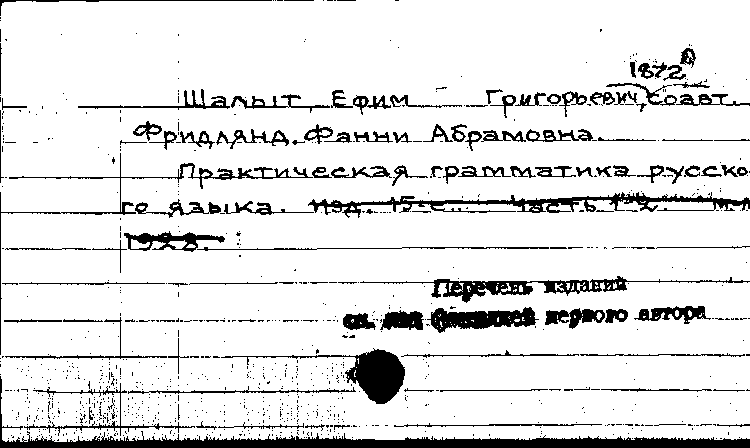 1872
Шалыт, Ефим Григорьевич, соавт.
Фридлянд, Фанни Абрамовна.
Практическая грамматика русско-
го языка. Изд. 15-е... Часть 1-2. М.-Л
1928.
Перечень изданий
см. под фамилией первого автора